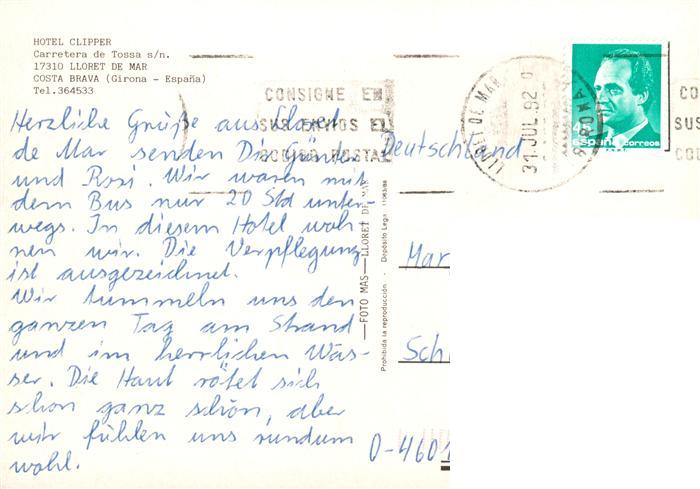 HOTEL CLIPPER
Carretera de Tossa s/n.
17310 LLORET DE MAR
COSTA BRAVA (Girona - España)
Tel.364533
Herzliche Grüße aus Lloret
de Mar senden Dir Günter
und Rosi. Wir waren mit
dem Bus nur 20 Std unter-
wegs. In diesem Hotel woh-
nen wir. Die Verpflegung
ist ausgezeichnet.
Wir tummeln uns den
ganzen Tag am Strand
und im herrlichen Was-
ser. Die Haut rötet sich
schon ganz schön, aber
wir fühlen uns rundum
wohl.
CONSIGNE EN
SUS ENVIOS EL
CODIGO POSTAL
FOTO MAS - LLORET DE MAR
Prohibida la reproducción - Depósito Legal
LLORET DE MAR
31 JUL 92
España correos
CO
SUS
CO
Deutschland
Mar
Sch
D-460